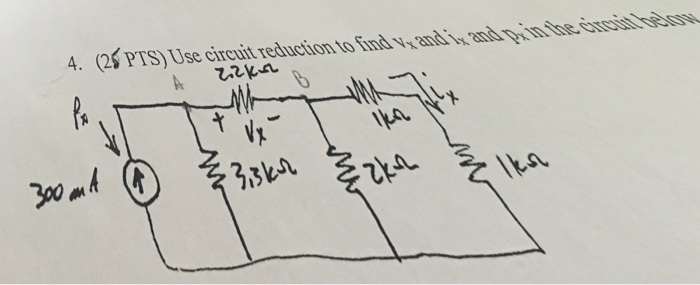 4. (25 PTS) Use circuit reduction to find vx and ix and px in the circuit below
2.2kΩ
A
B
ix
Px
+ Vx -
1kΩ
300 mA
3.3kΩ
2kΩ
1kΩ